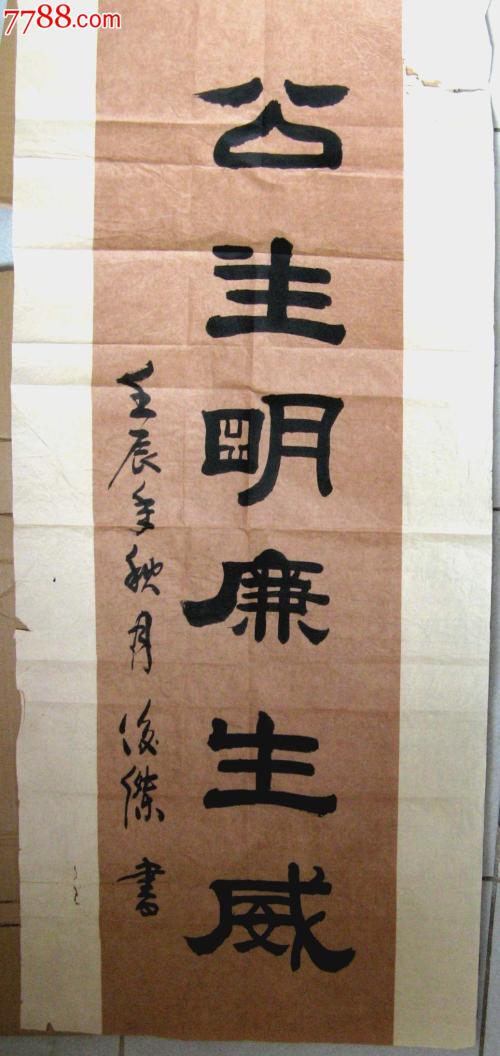 7788.com
公生明廉生威
壬辰年秋月俊傑書